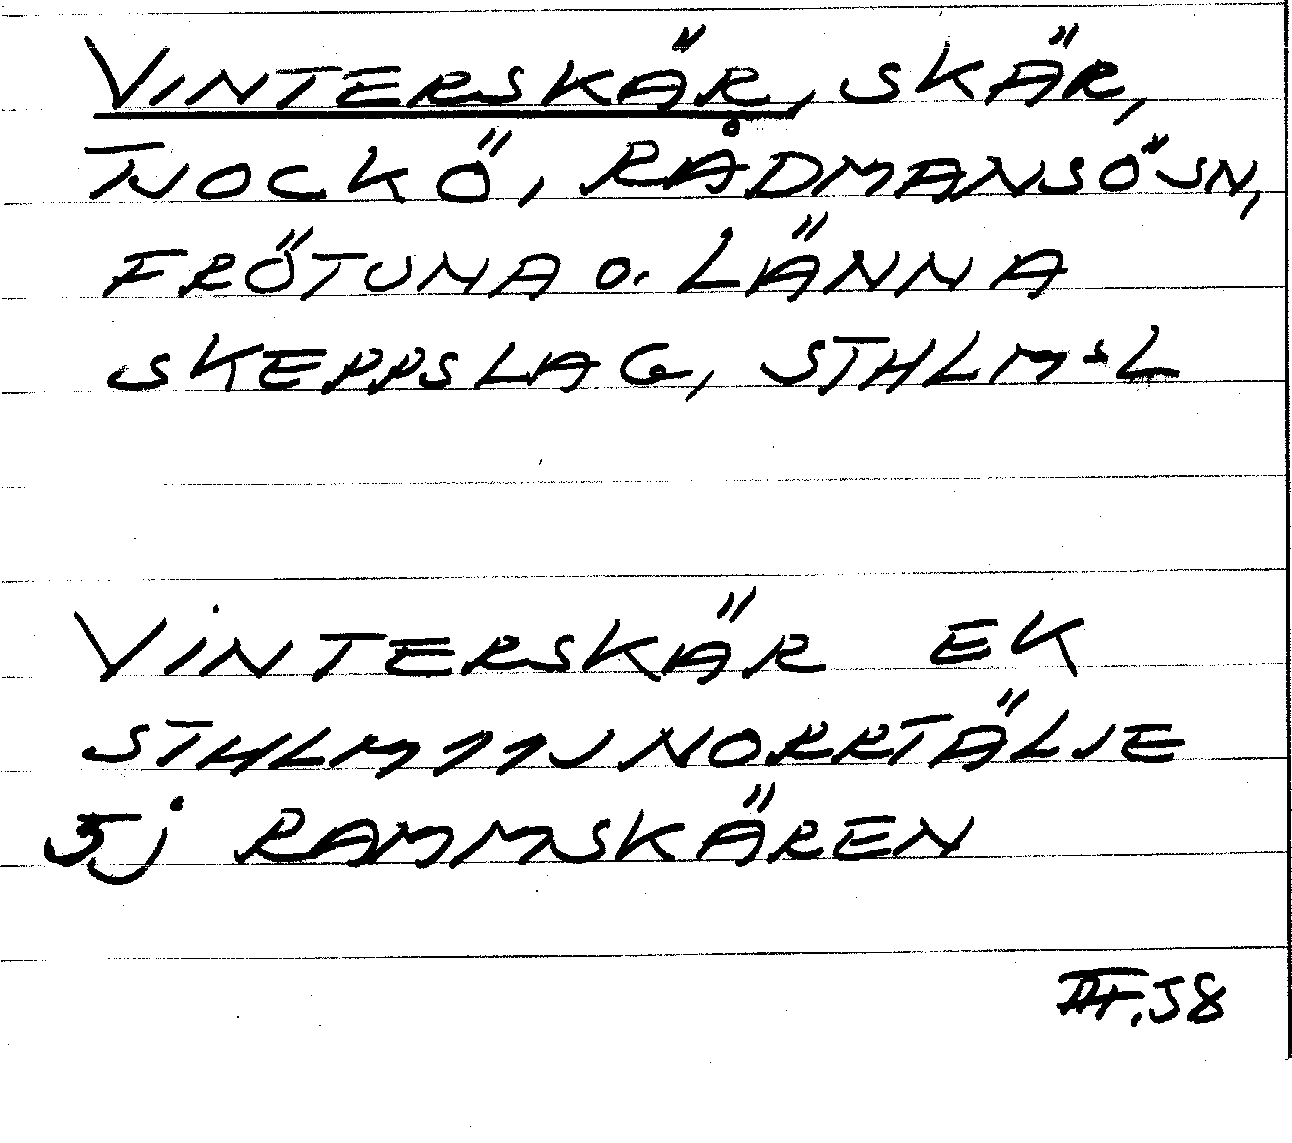 VINTERSKÄR, SKÄR,
TJOCKÖ, RÅDMANSÖ SN,
FRÖTUNA O. LÄNNA
SKEPPSLAG, STHLMS L
VINTERSKÄR EK
STHLM 11J NORRTÄLJE
5j RAMMSKÄREN